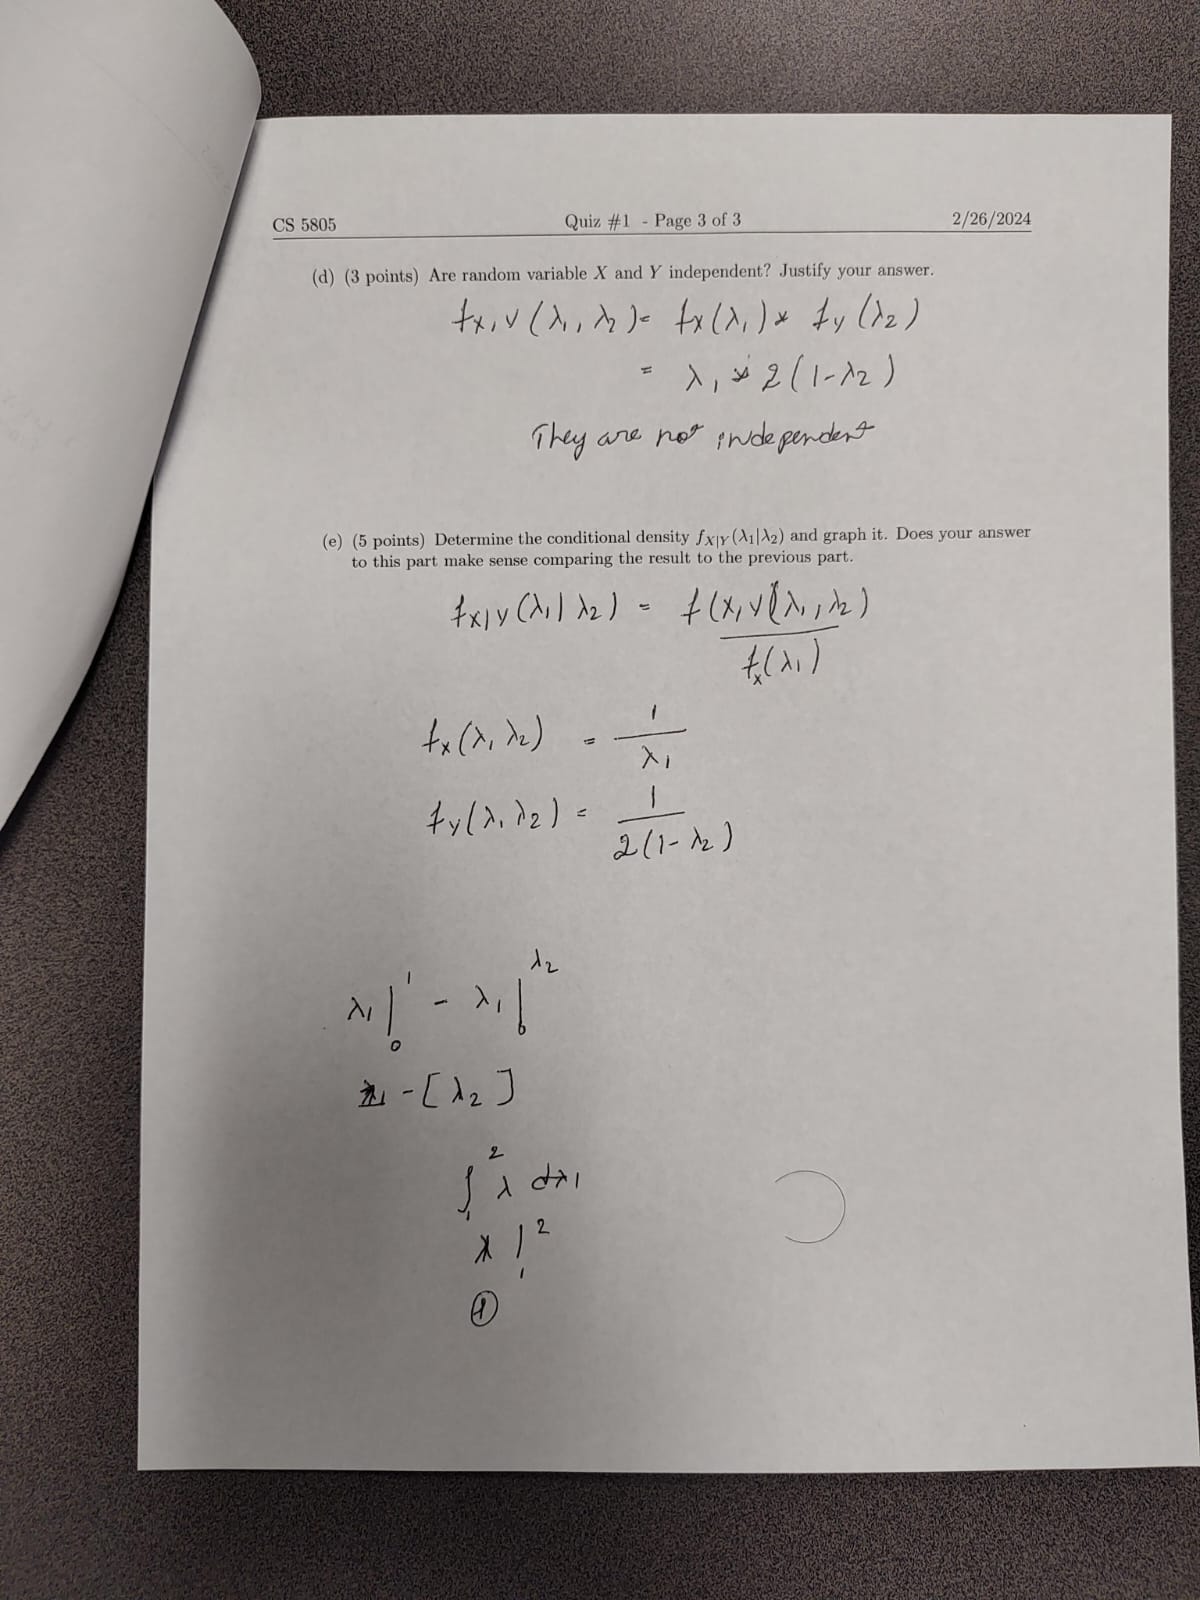 CS 5805 Quiz #1 - Page 3 of 3 2/26/2024
(d) (3 points) Are random variable X and Y independent? Justify your answer.
fx,y (λ1, λ2) = fx(λ1) * fy (λ2)
= λ1 * 2(1-λ2)
They are not independent
(e) (5 points) Determine the conditional density fX|Y(λ1|λ2) and graph it. Does your answer
to this part make sense comparing the result to the previous part.
fx|y (λ1|λ2) = f(x,y(λ1,λ2)
fx(λ1)
fx(λ1 λ2) = 1
λ1
fy(λ1 λ2) = 1
2(1-λ2)
λ1 |0 1 - λ1 |0 λ2
- [λ2]
∫1 2 λ dλ1
λ |1 2
1